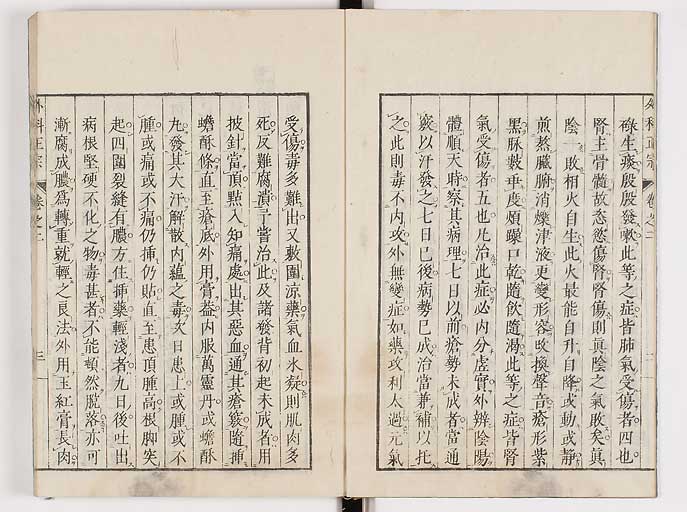 外科正宗 卷之二 二
碌生痰殷殷發嗽此等之症皆肺氣受傷者四也
腎主骨髓故恣慾傷腎腎傷則眞陰之氣敗矣眞
陰一敗相火自生此火最能自升自降或動或靜
煎熬臟腑消爍津液更變形容改換聲音瘡形紫
黑脉數乖度煩躁口乾隨飲隨渴此等之症皆腎
氣受傷者五也凡治此症必内分虛實外辨陰陽
體順天時察其病理七日以前瘡勢未成者當通
竅以汗發之七日已後病勢已成治當兼補以托
之此則毒不内攻外無變症如藥攻利太過元氣
受傷毒多難出又敷圍涼藥氣血氷凝則肌肉多
死反難腐潰予嘗治此及諸發背初起未成者用
披針當頂點入知痛處出其惡血通其瘡竅隨挿
蟾酥條直至瘡底外用膏蓋内服萬靈丹或蟾酥
丸發其大汗解散内蘊之毒次日患上或腫或不
腫或痛或不痛仍挿仍貼直至患頂腫高根脚突
起四圍裂縫有膿方住挿藥輕淺者九日後吐出
病根堅硬不化之物毒甚者不能頓然脱落亦可
漸腐成膿爲轉重就輕之良法外用玉紅膏長肉
外科正宗 卷之二 三